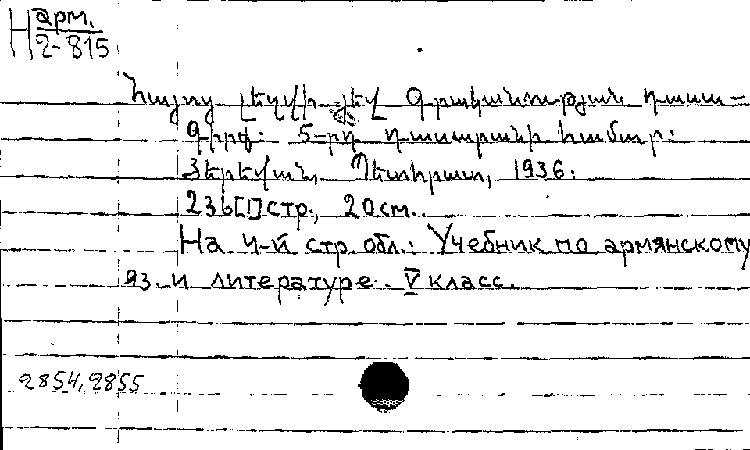 Н арм.
2-815
Հայոց լեզվի յեվ Գրականության դասա-
գիրք: 5-րդ դասարանի համար:
Յերեվան, Պետհրատ, 1936.
236[1]стр., 20см.
На 4-й стр. обл.: Учебник по армянскому
яз. и литературе. V класс.
2854, 2855